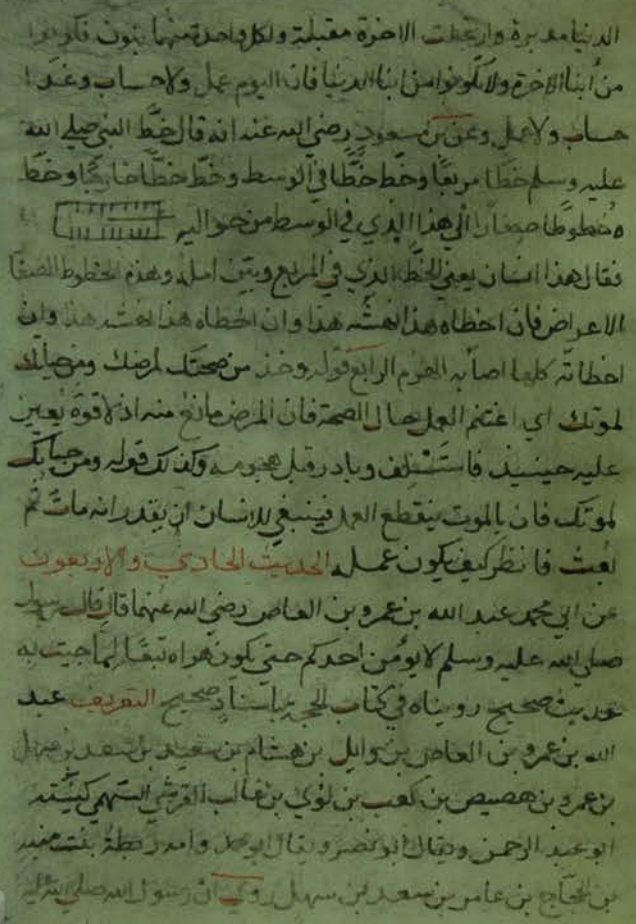 الدنيا مدبرة وارتحلت الاخرة مقبلة ولكل واحدة منهما بنون فكونوا
من أبنا الاخرة ولا تكونوا من ابنا الدنيا فان اليوم عمل ولا حساب وغدا
حساب ولا عمل وعن بن مسعود رضي الله عنه انه قال خط النبي صلي الله
عليه وسلم خطا مربعا وخط خطا في الوسط وخط خطا خارجا وخط
خطوطا صغارا الى هذا الذي في الوسط من حواليه
فقال هذا انسان يعني الخط الذي في المربع وبين امله وهذه الخطوط الصغا
الاعراض فان اخطاه هذا نهشه هذا وان اخطاه هذا نهشه هذا وان
اخطاته كلها اصابه الهرم الرابع قوله وخذ من صحتك لمرضك ومن حياتك
لموتك اي اغتنم العمل حال الصحة فان المرض مانع منه اذ لا قوة تعين
عليه حينيذ فاستسلف وبادر قبل هجومه وكذلك قوله ومن حياتك
لموتك فان بالموت ينقطع العمل فينبغي للانسان ان يقدر انه مات ثم
بعث فانظر كيف يكون عمله الحديث الحادي والاربعون
عن ابي محمد عبد الله بن عمرو بن العاص رضي الله عنهما قال قال رسول
صلي الله عليه وسلم لا يؤمن احدكم حتي يكون هواه تبعا لما جيت به
حديث صحيح رويناه في كتاب الحجة باسناد صحيح التعريف عبد
الله بن عمرو بن العاص بن وايل بن هشام بن سعيد بن سعد بن سهل
بن عمرو بن هصيص بن كعب بن لؤي بن غالب القرشي السهمي كنيته
ابو عبد الرحمن ويقال ابو نصر ويقال ابو محمد وامه ريطة بنت منبه
بن الحجاج بن عامر بن سعد بن سهل روي ان رسول الله صلي الله عليه